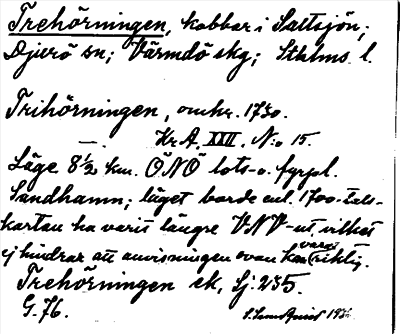 Trehörningen, kobbar i Saltsjön;
Djurö sn; Värmdö skg; Sthlms. l.
Trihörningen, omkr. 1730.
Kr. A. XXII. N:o 15.
Läge 8½ km. ÖNÖ lots- o. fyrpl.
Sandhamn; läget borde enl. 1700-tals-
kartan ha varit längre VNV-ut, vilket
ej hindrar att anvisningen ovan kan vara riktig.
Trehörningen sk, Sj. 235.
G. 76.